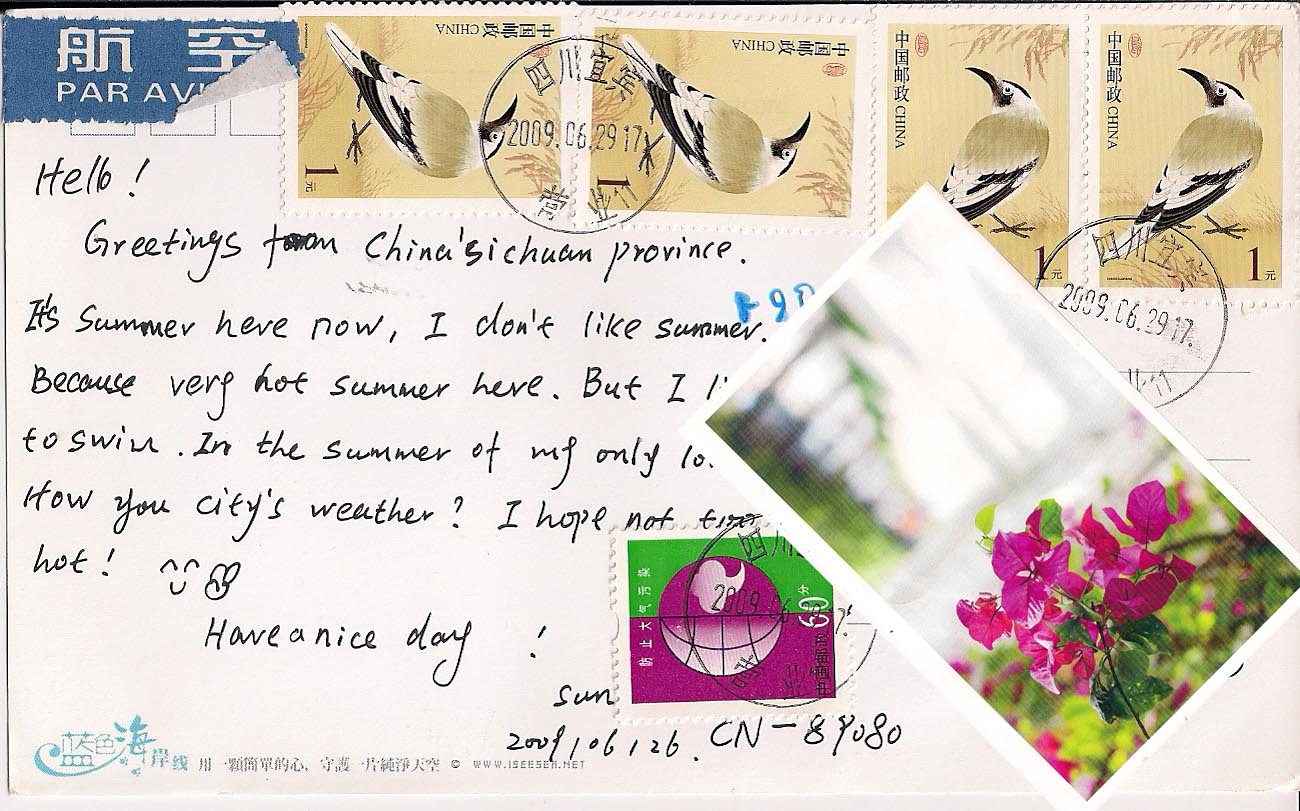 航空
PAR AV
中国邮政 CHINA
1元
中国邮政 CHINA
1
中国邮政 CHINA
1元
中国邮政 CHINA
1元
四川宜宾
2009.06.29 17
四川宜宾
2009.06.29.17.
Hello!
Greetings from China'sichuan province.
It's summer here now, I don't like summer.
Because very hot summer here. But I li
to swim. In the summer of my only lo
How you city's weather? I hope not
hot!
Have a nice day !
sun
2009/06/26. CN-89080
防止大气污染
60分
中国邮政
四川
2009.06.29 17.
蓝色海岸线 用一顆簡單的心，守護一片純淨天空 © WWW.ISEESEA.NET